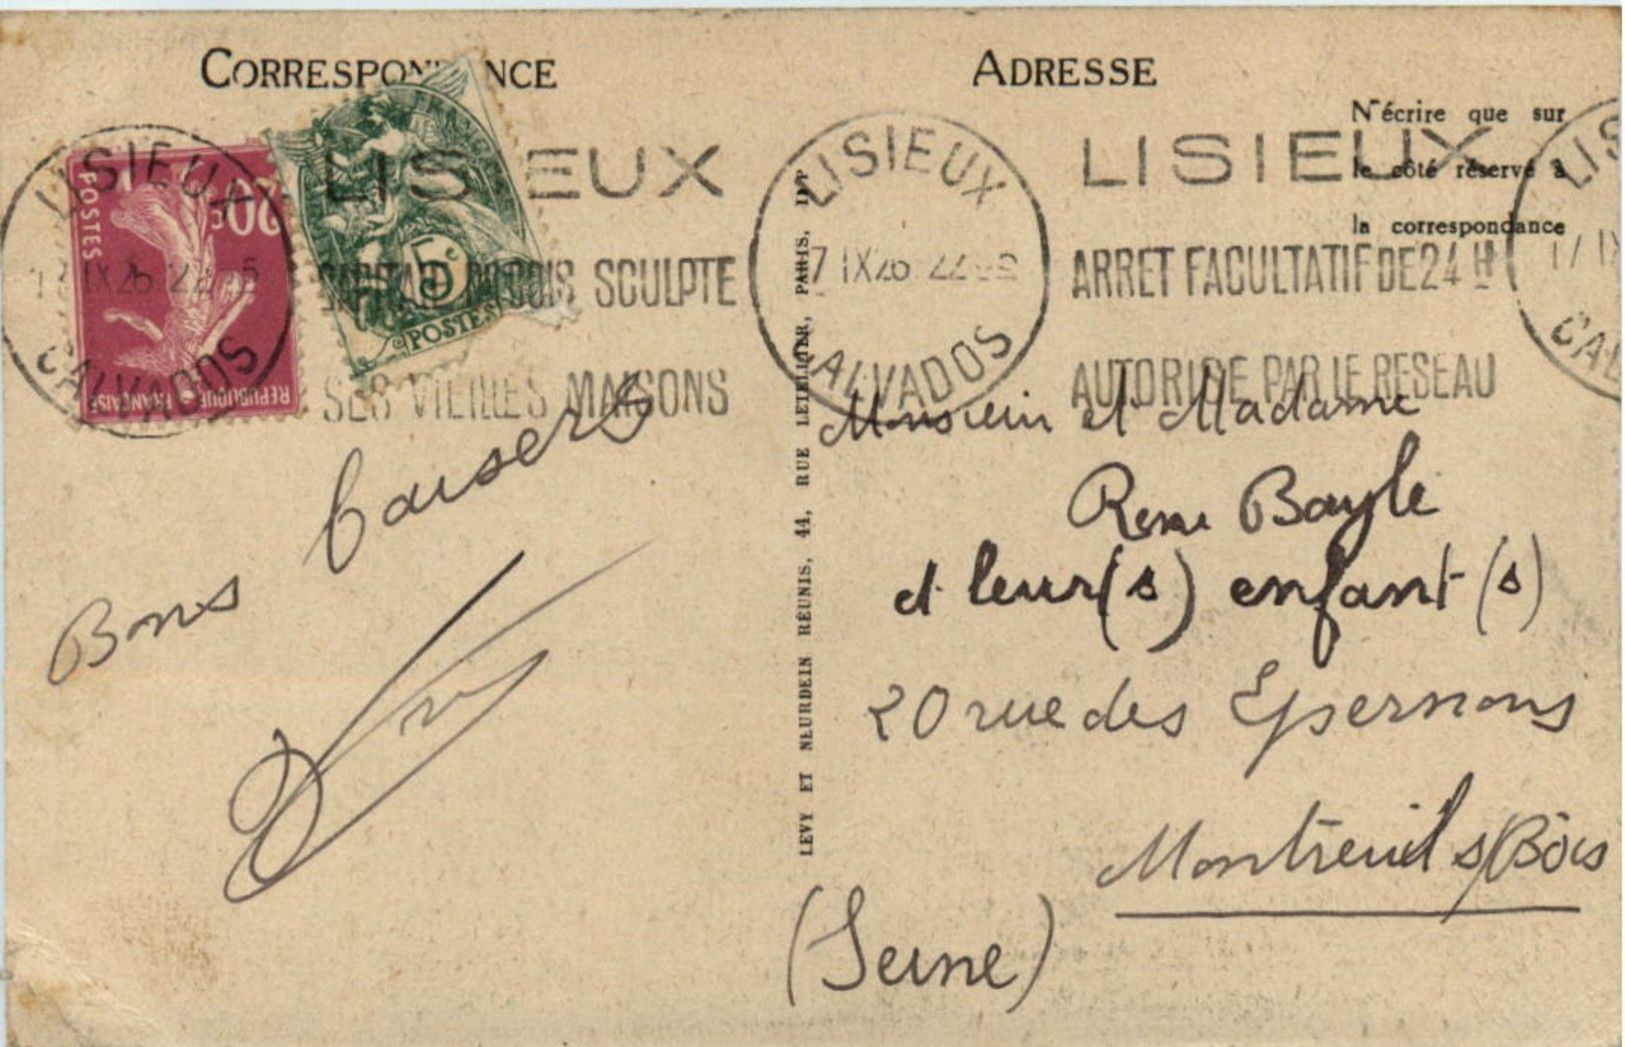 CORRESPONDANCE
ADRESSE
N'écrire que sur
le côté réservé à
la correspondance
POSTES
20c
RÉPUBLIQUE FRANÇAISE
5c
POSTES
LISIEUX
17 IX 26 22
CALVADOS
LISIEUX
SCULPTE
SES VIEILLES MAISONS
LISIEUX
17 IX 26 22
CALVADOS
LISIEUX
ARRET FACULTATIF DE 24 H
AUTORISE PAR LE RESEAU
LIS
17 IX
CAL
Bons baisers
LEVY ET NEURDEIN RÉUNIS, 44, RUE LETELLIER, PARIS, IMP
Monsieur et Madame
Bayle
et leur(s) enfant(s)
20 rue des Epernons
Montreuil s/Bois
(Seine)